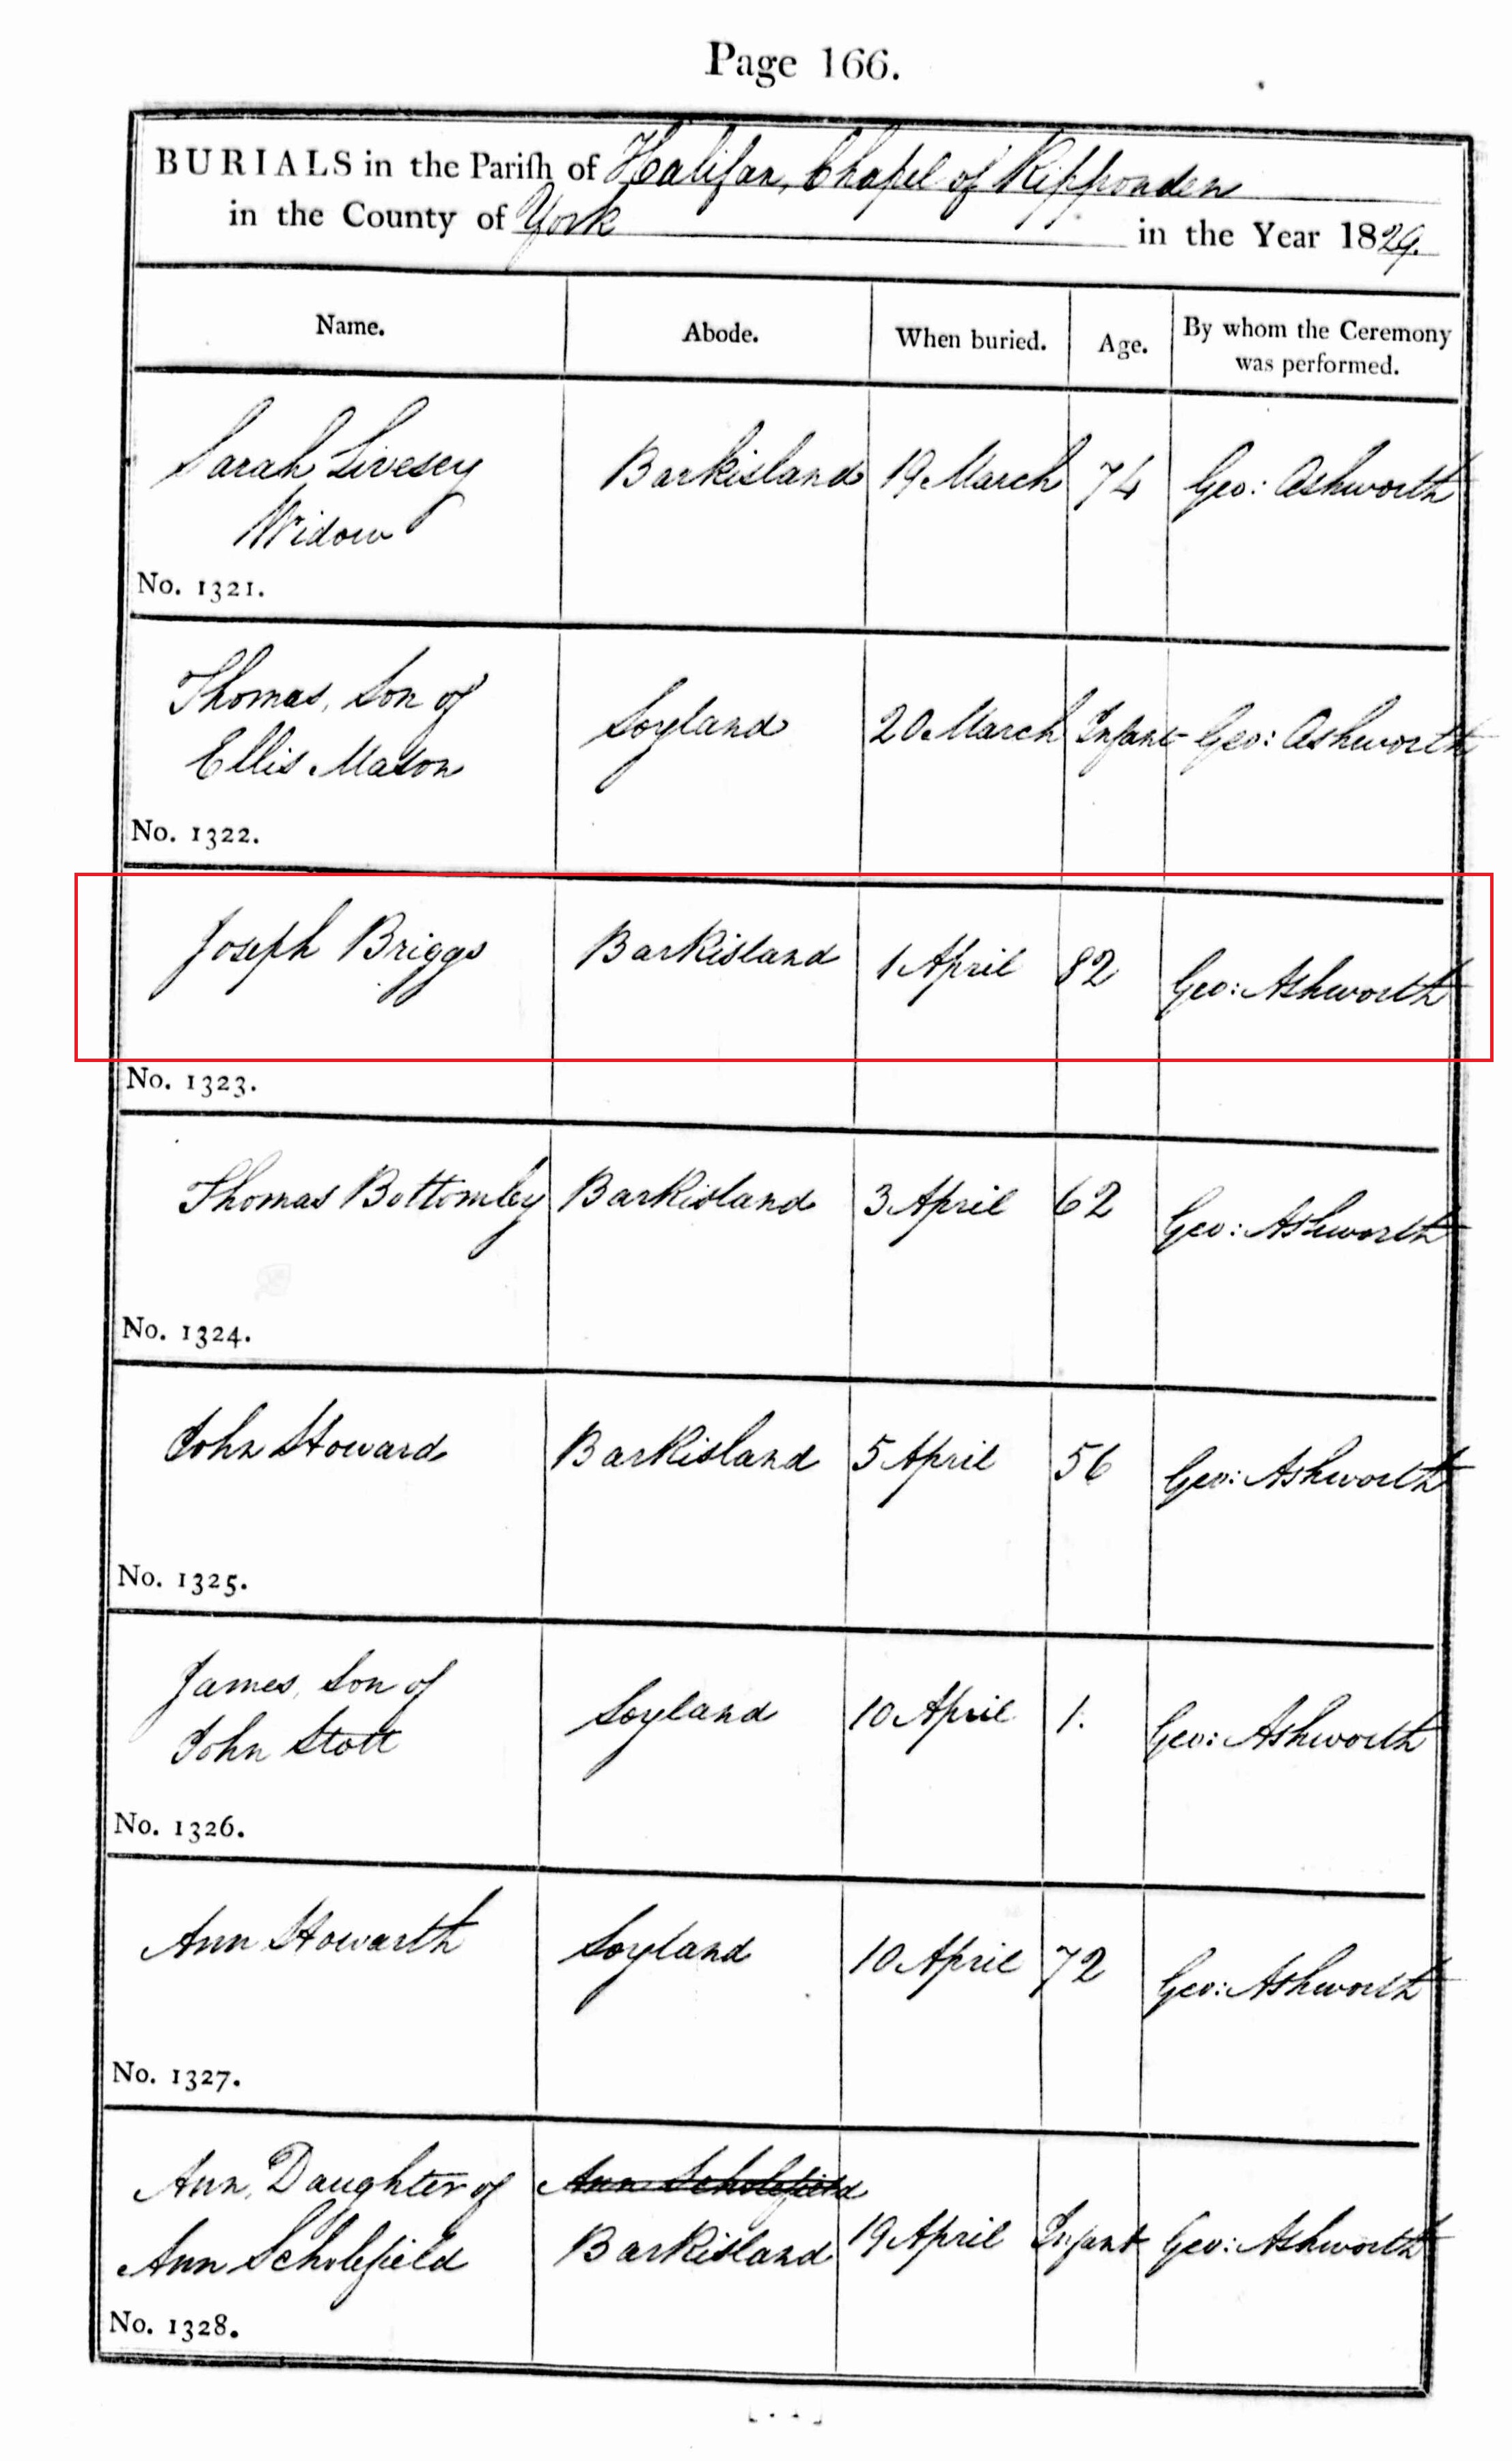 Page 166.
BURIALS in the Pariſh of Halifax, Chapel of Ripponden
in the County of York in the Year 1829.
Name. Abode. When buried. Age. By whom the Ceremony
was performed.
Sarah Livesey Barkisland 19 March 74 Geo: Ashworth
Widow
No. 1321.
Thomas, Son of Soyland 20 March Infant Geo: Ashworth
Ellis Mason
No. 1322.
Joseph Briggs Barkisland 1 April 82 Geo: Ashworth
No. 1323.
Thomas Bottomley Barkisland 3 April 62 Geo: Ashworth
No. 1324.
John Howard Barkisland 5 April 56 Geo: Ashworth
No. 1325.
James, Son of Soyland 10 April 1. Geo: Ashworth
John Stott
No. 1326.
Ann Howarth Soyland 10 April 72 Geo: Ashworth
No. 1327.
Ann, Daughter of Ann Scholefield
Ann Scholefield Barkisland 19 April Infant Geo: Ashworth
No. 1328.